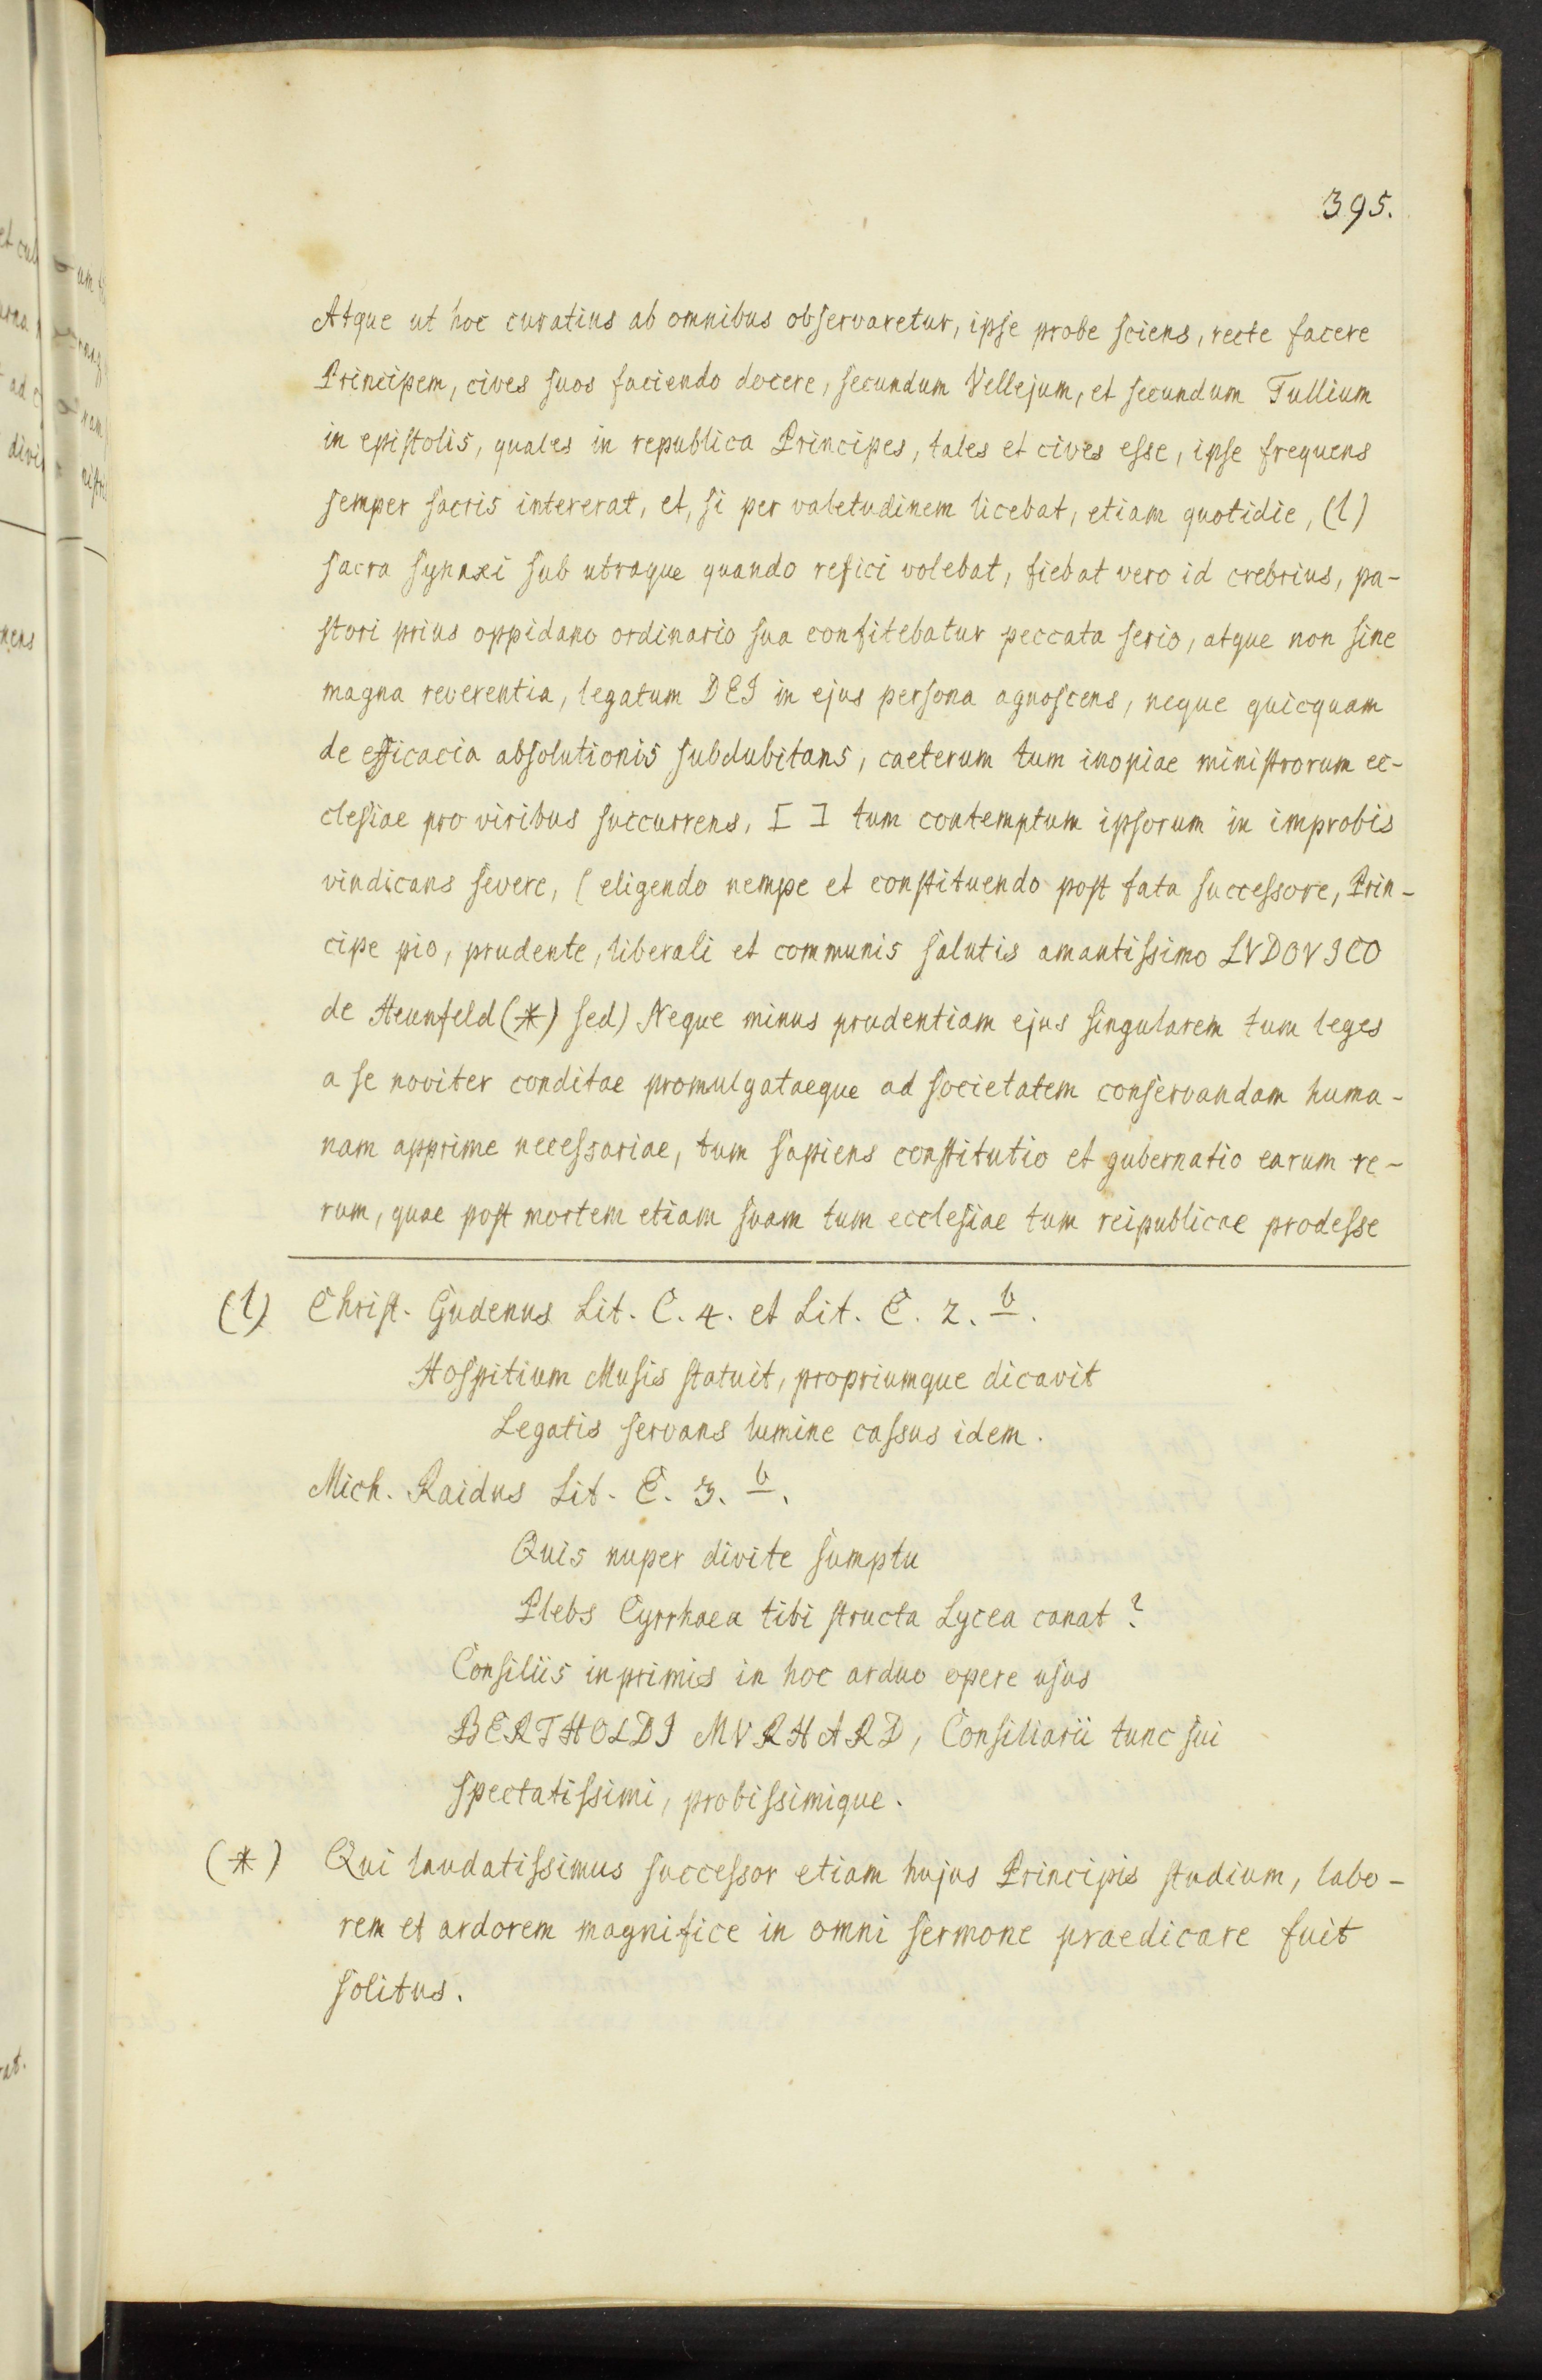 395.
Atque ut hoc curatius ab omnibus observaretur, ipse probe sciens, recte facere
Principem, cives suos faciendo docere, secundum Vellejum, et secundum Tullium
in epistolis, quales in republica Principes, tales et cives esse, ipse frequens
semper sacris intererat, et, si per valetudinem licebat, etiam quotidie, (l)
sacra synaxi sub utraque quando refici volebat, fiebat vero id crebrius, pa-
stori prius oppidano ordinario sua confitebatur peccata serio, atque non sine
magna reverentia, legatum DEI in ejus persona agnoscens, neque quicquam
de efficacia absolutionis subdubitans, caeterum tum inopiae ministrorum ec-
clesiae pro viribus succurrens, [ ] tum contemptum ipsorum in improbis
vindicans severe, (eligendo nempe et constituendo post fata successore, Prin-
cipe pio, prudente, liberali et communis salutis amantissimo LVDOVICO
de Heunfeld (*) sed) Neque minus prudentiam ejus singularem tum leges
a se noviter conditae promulgataeque ad societatem conservandam huma-
nam apprime necessariae, tum sapiens constitutio et gubernatio earum re-
rum, quae post mortem etiam suam tum ecclesiae tum reipublicae prodesse
(l) Christ. Gudenus Lit. C. 4. et Lit. C. 2. b.
Hospitium Musis statuit, propriumque dicavit
Legatis servans lumine cassus idem.
Mich. Raidus Lit. C. 3. b.
Quis nuper divite sumptu
Plebs Cyrrhaea tibi structa Lycea canat?
Consiliis inprimis in hoc arduo opere usus
BERTHOLDI MVRHARD, Consiliarii tunc sui
spectatissimi, probissimique.
(*) Qui laudatissimus successor etiam hujus Principis studium, labo-
rem et ardorem magnifice in omni sermone praedicare fuit
solitus.